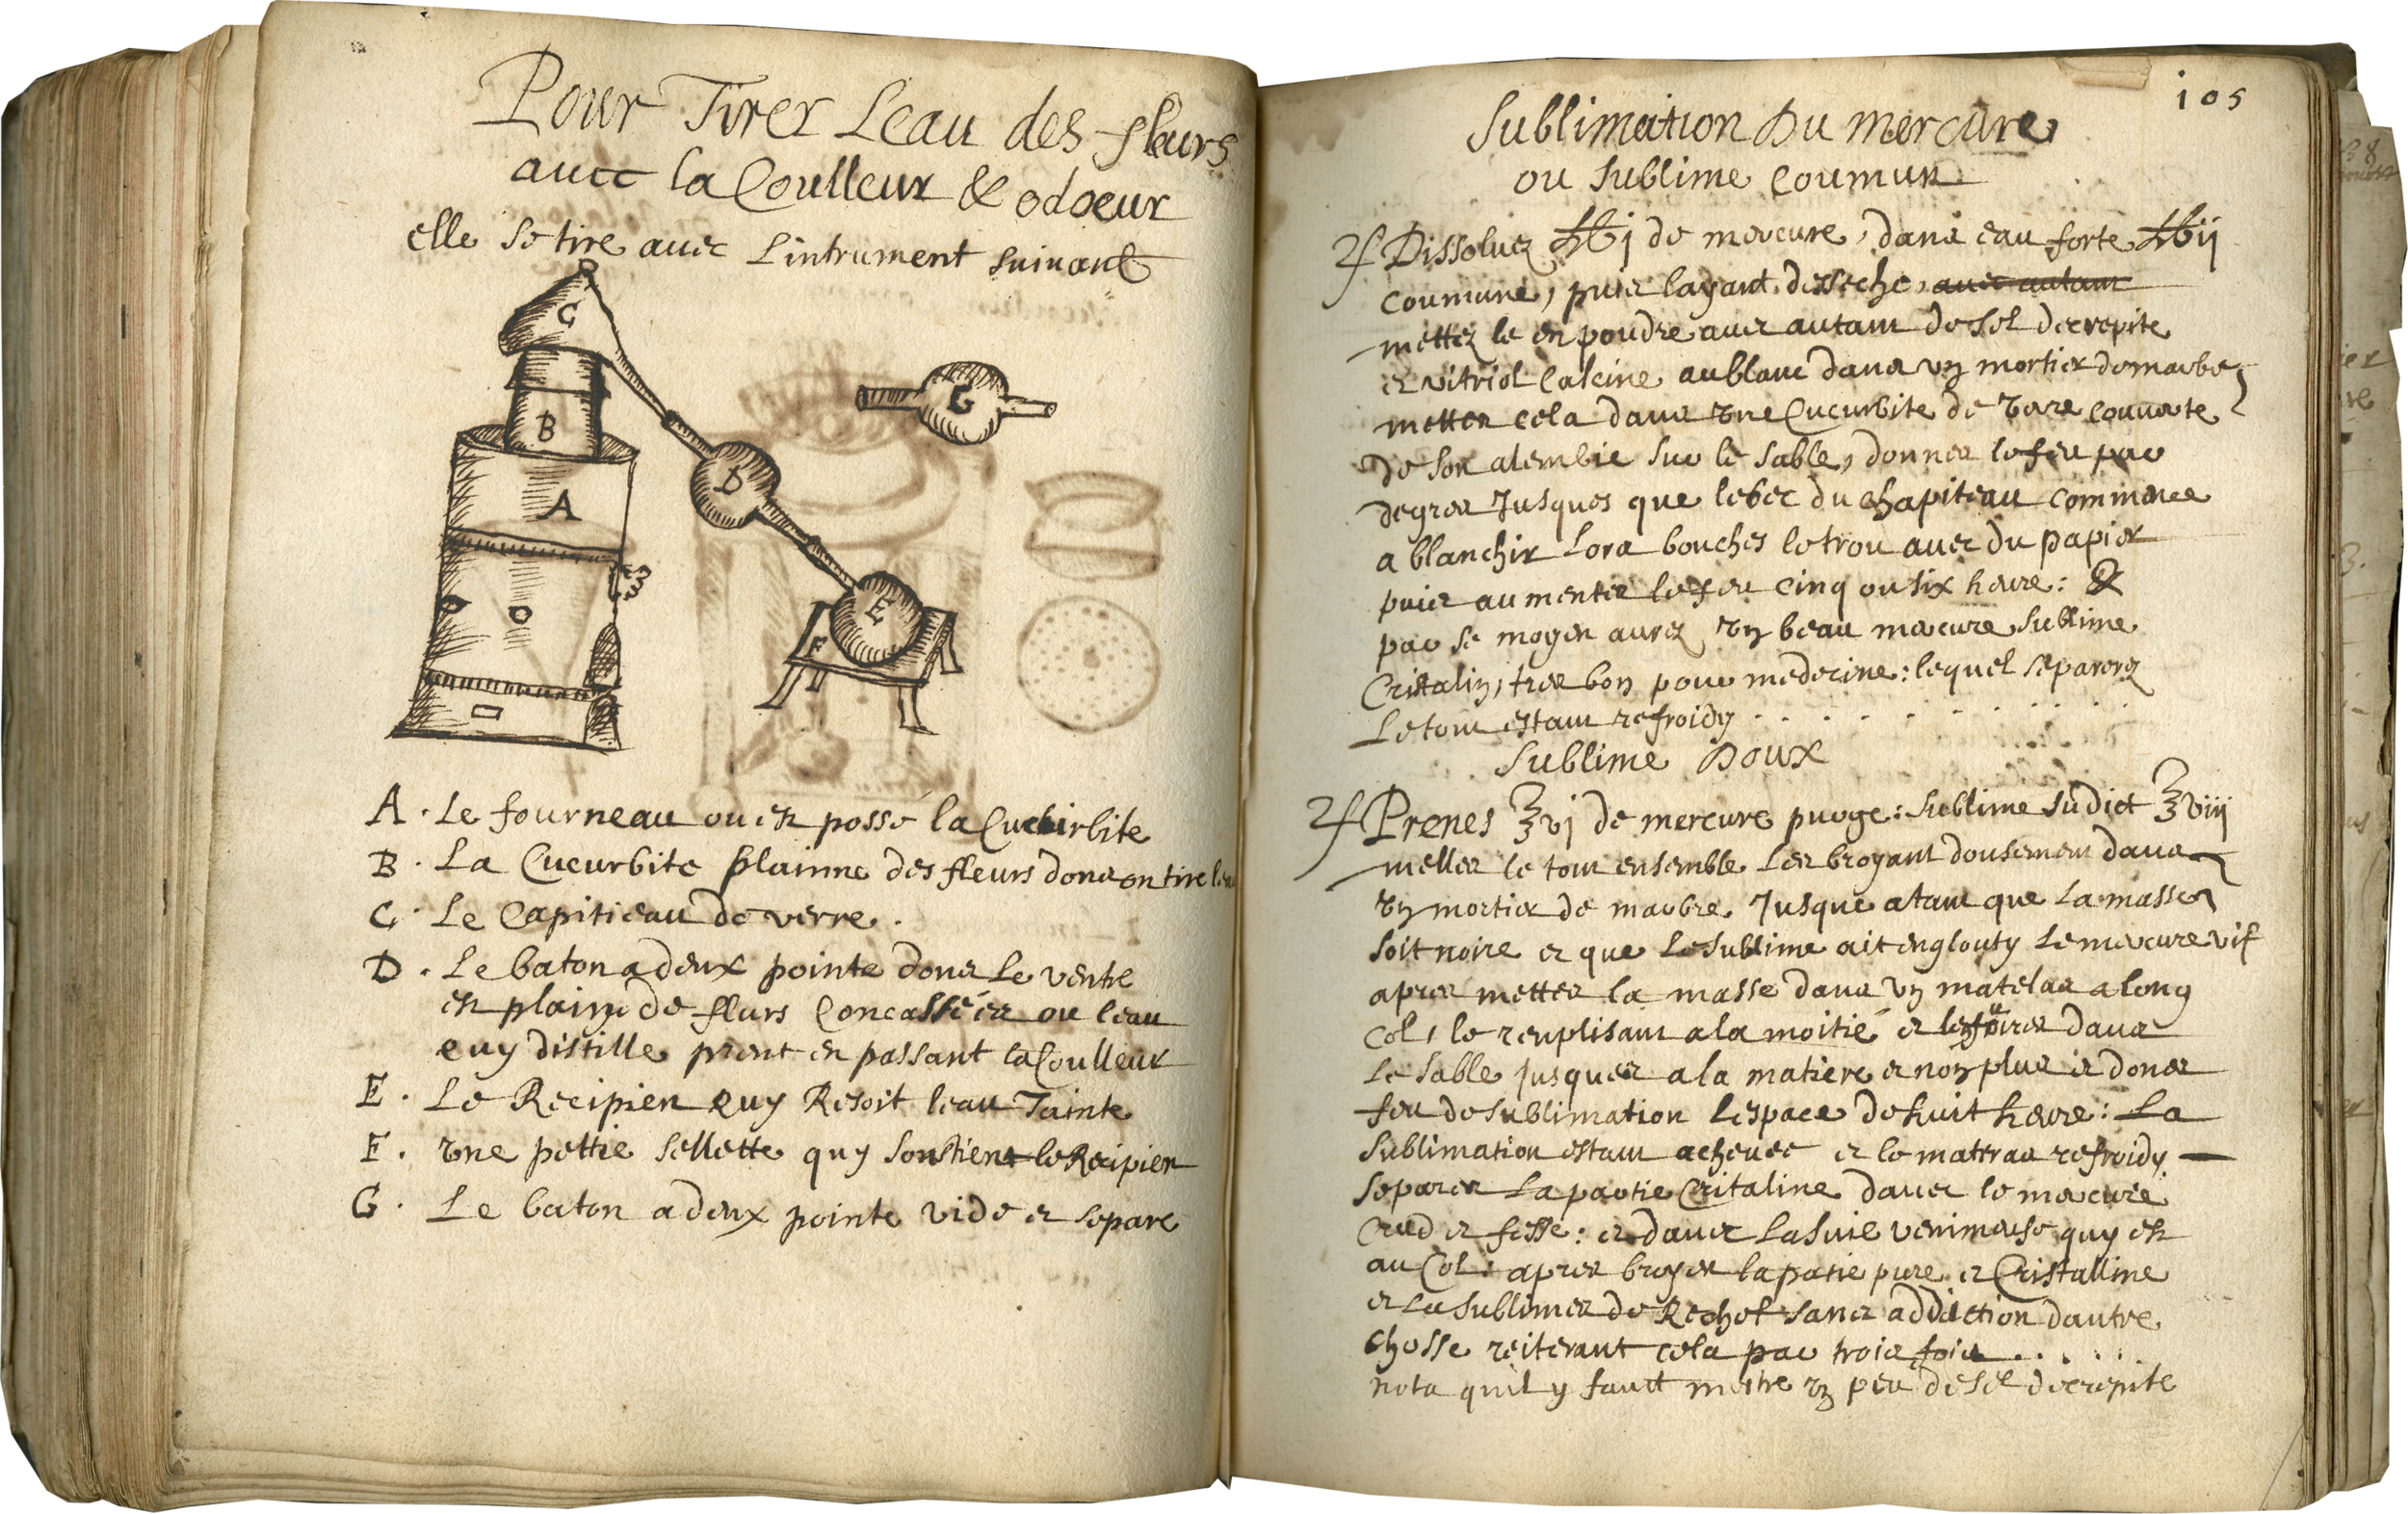 Pour Tirer Leau des fleurs
avec la Coulleur & odoeur
elle se tire avec Lintrument suivant
C
B
A
D
E
F
G
A. Le fourneau ou est possé la Cucurbite
B. La Cucurbite plainne des fleurs dont on tire leau
C. Le Capitieau de verre.
D. Le baton a deux pointe dont Le ventre
est plain de flurs Concassées ou leau
quy distille prent en passant la Coulleur
E. Le Recipien quy Resoit leau Tainte
F. une pettie sellette quy soustient le Recipien
G. Le baton a deux pointe vide et separe
105
Sublimation Du mercure
ou sublime Coumun
Dissoluez ℔j de mercure, dans eau forte ℔ij
coumune, puis layant desseche, avec autant
mettez le en poudre avec autant de sel decrepite
et vitriol Calcine au blanc dans un mortier de marbre
mettez cela dans une Cucurbite de verre couverte
de son alembic sur le sable, donnez le feu par
degrez Jusques que le bec du chapiteau commence
a blanchir Lors bouches le trou avec du papier
puis aumentez le feu Cinq ou six heure: &
par se moyen aurez un beau mercure sublime
Cristalin, tres bon pour medecine: lequel separerez
Le tout estant refroidy . . . . . . . . .
Sublime Doux
Prenes ʒvj de mercure purge: sublime sudict ʒviij
mellez le tout ensemble Les broyant dousement dans
un mortier de marbre Jusque a tant que La masse
soit noire et que Le sublime ait englouty Le mercure vif
apres mettez la masse dans un matelas a long
Col, le remplisant a la moitié et dans
Le sable jusques a la matiere et non plus et donez
feu de sublimation Lespace de huit heure: La
sublimation estant achevee et le mattras refroidy
separez La partie Critaline davec le mercure
Crud et fesse: et davec La suie venimeuse quy est
au Col: apres broyez la patie pure et Cristalline
et La sublimez de Rechef sans addiction dautre
chosse reiterant cela par trois fois . . . . .
nota quil y fautt mettre un peu de sel decrepite